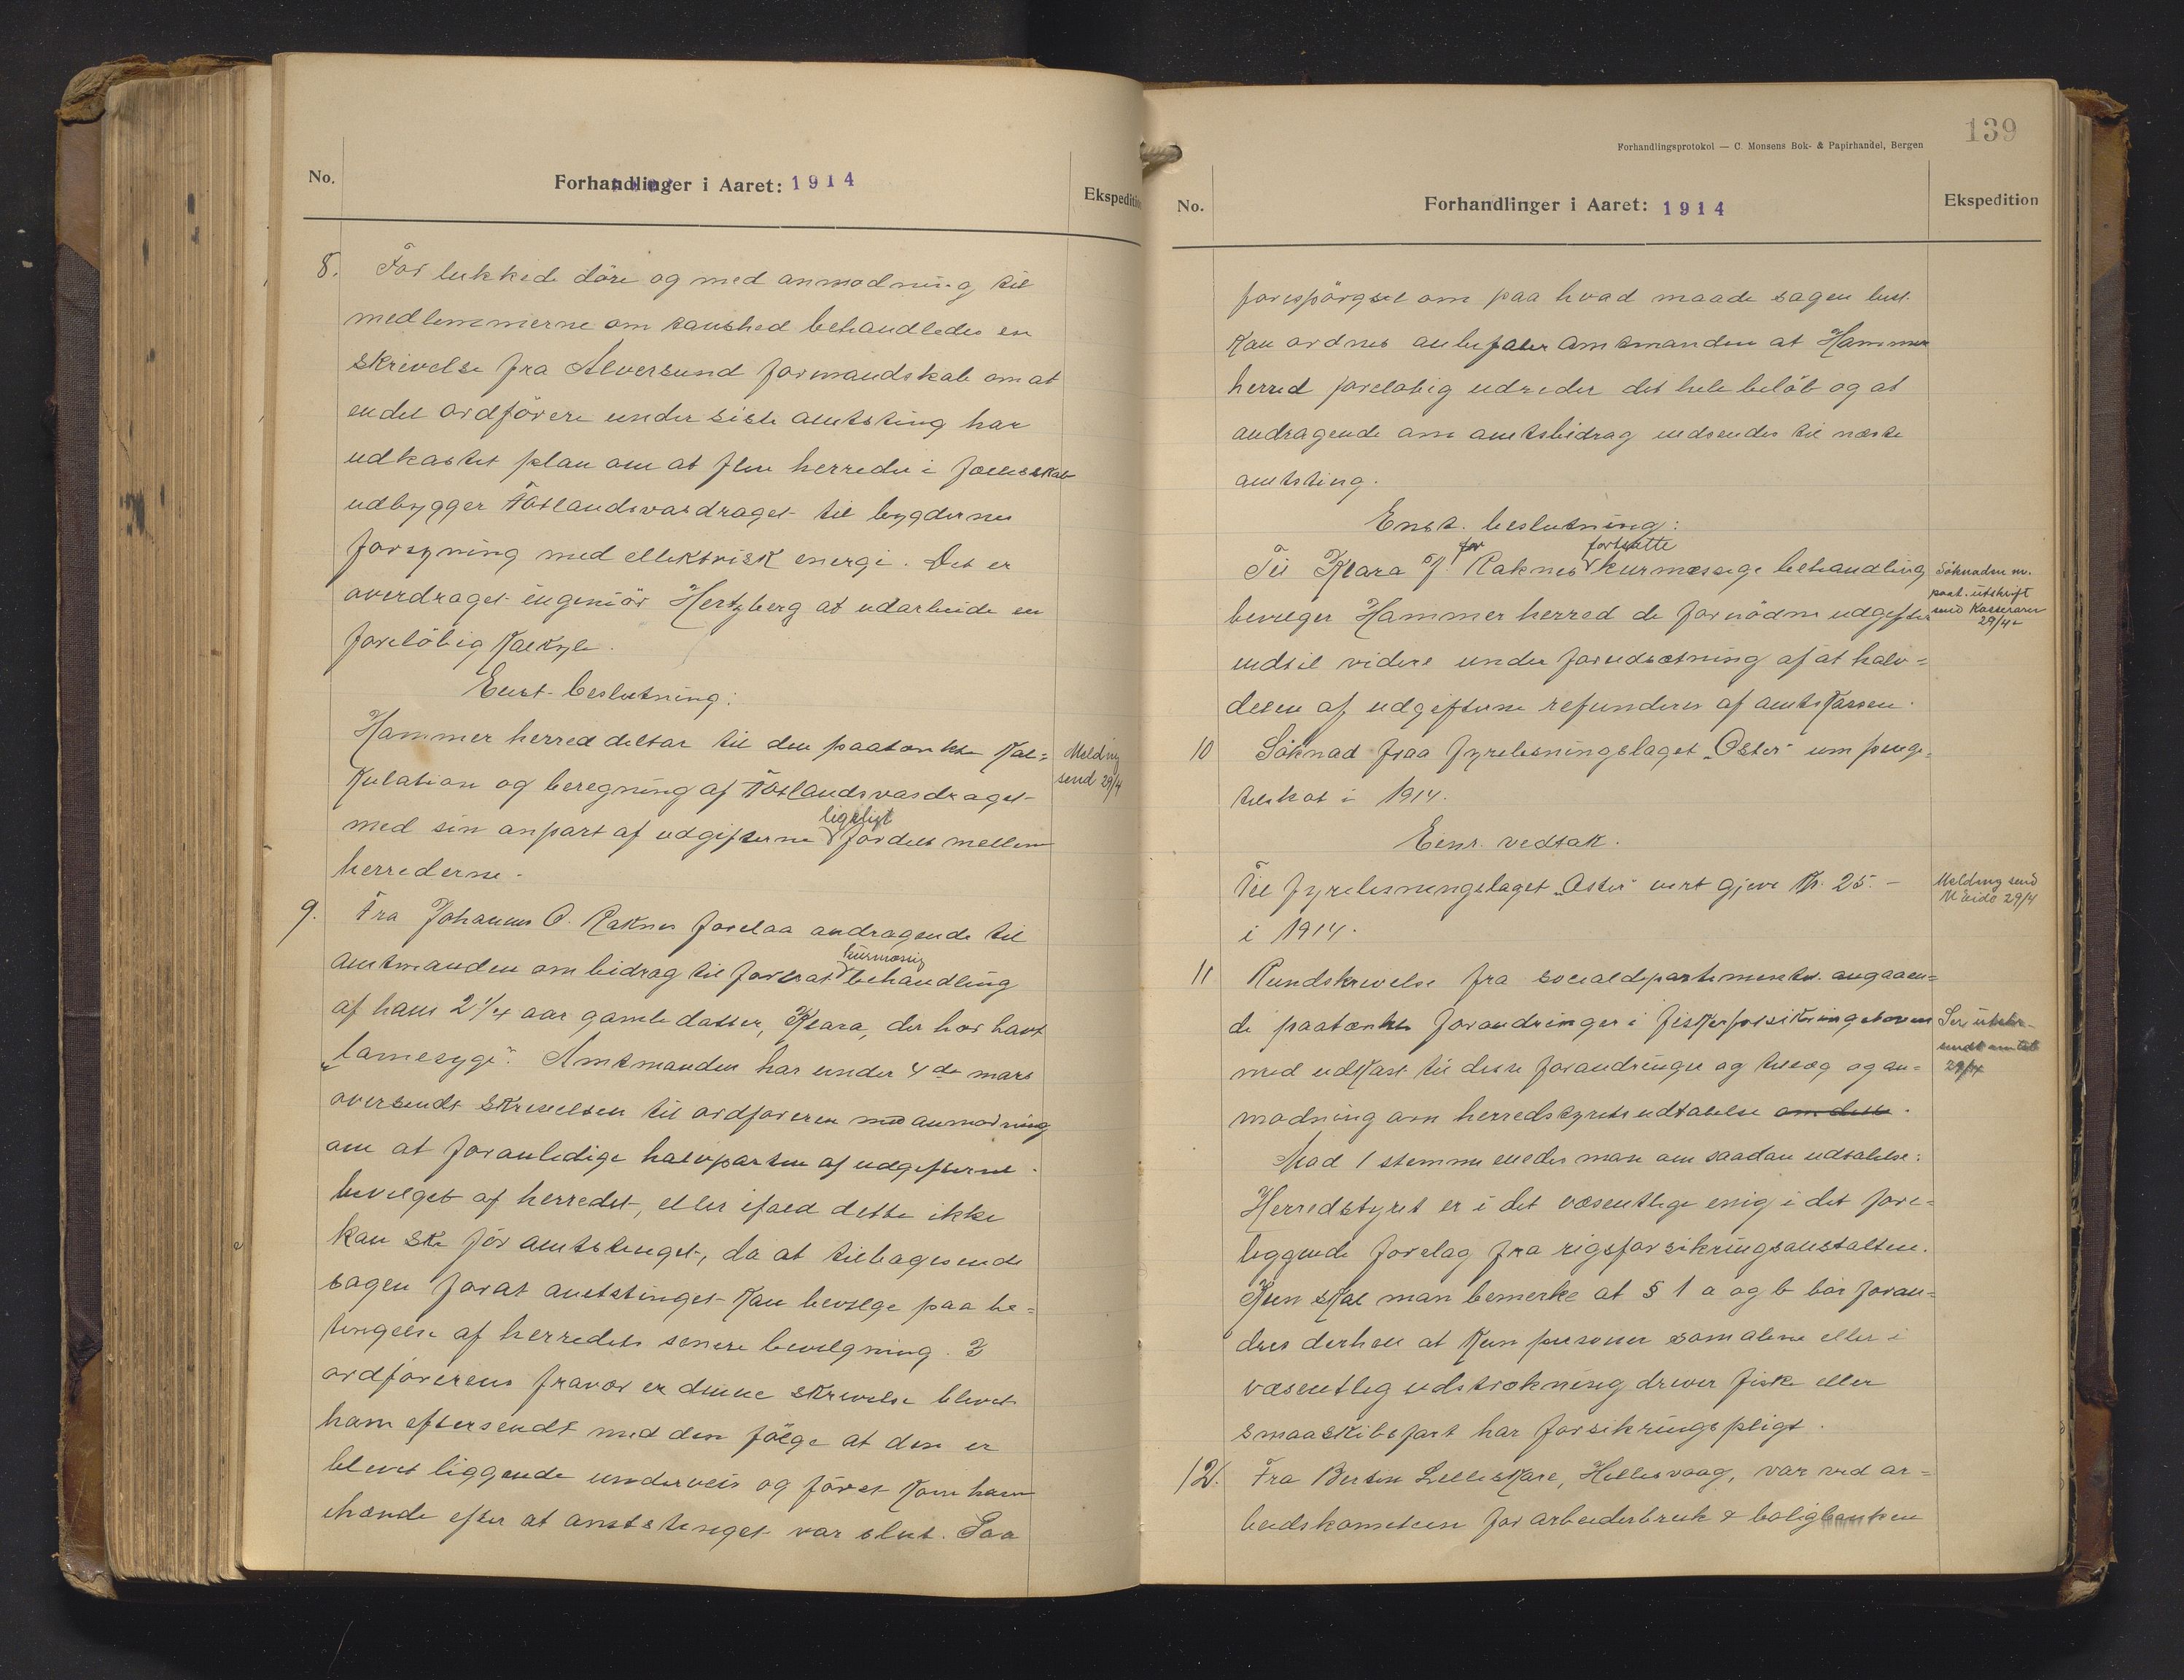 No.
Forhandlinger i Aaret: 1914
Ekspedition
8. For lukkede döre og med anmodning til
medlemmerne om taushed behandledes en
skrivelse fra Alversund formandskab om at
endel ordförere under siste amtsting har
udkastet plan om at flere herreder i fællesskab
udbygger Fotlandsvasdraget til bygdernes
forsyning med ellektrisk energi. Det er
overdraget ingeniör Hertzberg at udarbeide en
foreløbig kalkyle.
Enst. beslutning:
Hammer herred deltar til den paatænkte kal=
kulation og beregning af Fotlandsvasdraget
med sin anpart af udgifterne ligeligt fordelt mellem
herrederne.
Melding
send 29/4
9. Fra Johannes O. Raknes forelaa andragende til
amtmanden om bidrag til fortsat kurmæssig behandling
af hans 2 1/4 aar gamle datter, Klara, der har havt
"lamesyge". Amtmanden har under 4de mars
oversendt skrivelsen til ordføreren med anmodning
om at foranledige halvparten af udgifterne
bevilget af herredet, eller ifald dette ikke
kan ske för amtstinget, da at tilbagesende
sagen forat amtstinget kan bevilge paa be=
tingelse af herredets senere bevilgning. I
ordförerens fravær er denne skrivelse blevet
ham eftersendt med den følge at den er
blevet liggende underveis og först kom ham
ihænde efter at amtstinget var slut. Paa
139
Forhandlingsprotokol — C. Monsens Bok- & Papirhandel, Bergen
No.
Forhandlinger i Aaret: 1914
Ekspedition
forespörgsel om paa hvad maade sagen best
kan ordnes anbefaler amtmanden at Hammer
herred foreløbig udreder det hele beløb og at
andragende om amtsbidrag indsendes til næste
amtsting.
Enst. beslutning:
Til Klara J. Raknes for fortsatte kurmæssige behandling
bevilger Hammer herred de fornödne udgifter
indtil videre under forudsætning af at halv=
delen af udgifterne refunderes af amtskassen.
Söknaden m.
paat. utskrift
send Kassereren
29/4
10 Söknad fraa fyrelesningslaget "Oster" um penge=
tilskot i 1914.
Einr. vedtak.
Til fyrelesningslaget "Oster" vert gjeve Kr. 25.–
i 1914.
Melding send
29/4
11 Rundskrivelse fra socialdepartementet angaaen=
de paatænkte forandringer i fiskerforsikringsloven
med udkast til disse forandringer og tillæg og an=
modning om herredstyrets udtalelse om dette.
29/4
Mod 1 stemme enedes man om saadan udtalelse:
Herredstyret er i det væsentlige enig i det fore=
liggende forslag fra rigsforsikringsanstalten.
Kun skal man bemerke at § 1 a og b bør foran=
dres derhen at kun personer som alene eller i
væsentlig udstrækning driver fiske eller
smaaskibsfart har forsikringspligt.
12. Fra Bertin Lilleskare, Hellesvaag, var ved ar=
beidskomiteen for arbeiderbruk & boligbanken